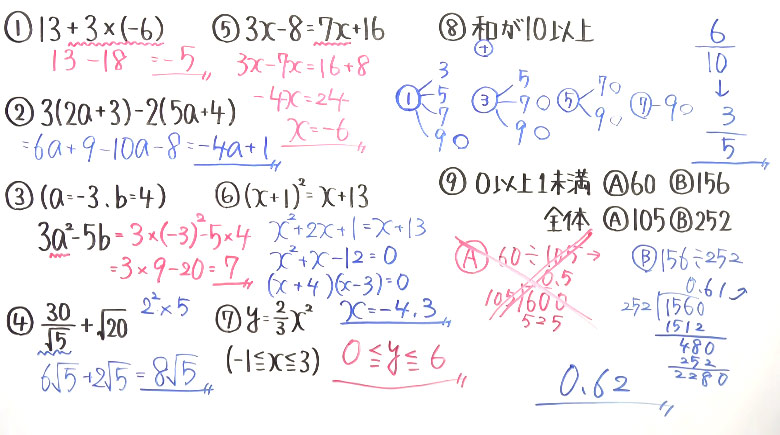 ① 13+3×(-6)
13-18 =-5
② 3(2a+3)-2(5a+4)
=6a+9-10a-8=-4a+1
③ (a=-3、b=4)
3a²-5b=3×(-3)²-5×4
=3×9-20=7
④ 30/√5+√20 2²×5
6√5+2√5=8√5
⑤ 3x-8=7x+16
3x-7x=16+8
-4x=24
x=-6
⑥ (x+1)²=x+13
x²+2x+1=x+13
x²+x-12=0
(x+4)(x-3)=0
x=-4,3
⑦ y=2/3x²
(-1≦x≦3) 0≦y≦6
⑧ 和が10以上
+
① 3
5
7
9○
③ 5
7○
9○
⑤ 7○
9○
⑦-9○
6/10
↓
3/5
⑨ 0以上1未満 Ⓐ60 Ⓑ156
全体 Ⓐ105 Ⓑ252
Ⓐ 60÷105→
0.5
105 600
525
Ⓑ156÷252
0.61
252 1560
1512
480
252
2280
0.62